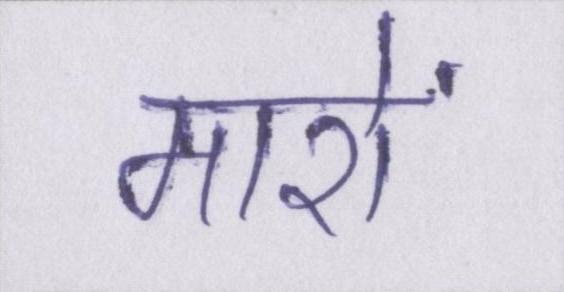 मारों